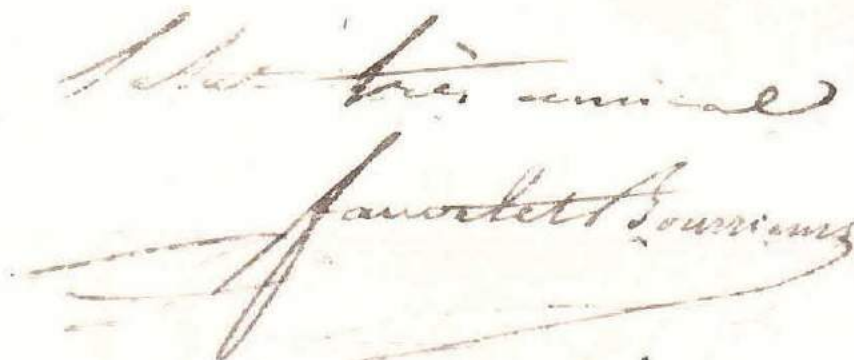 Salut très amical
fauvelet Bourrienne